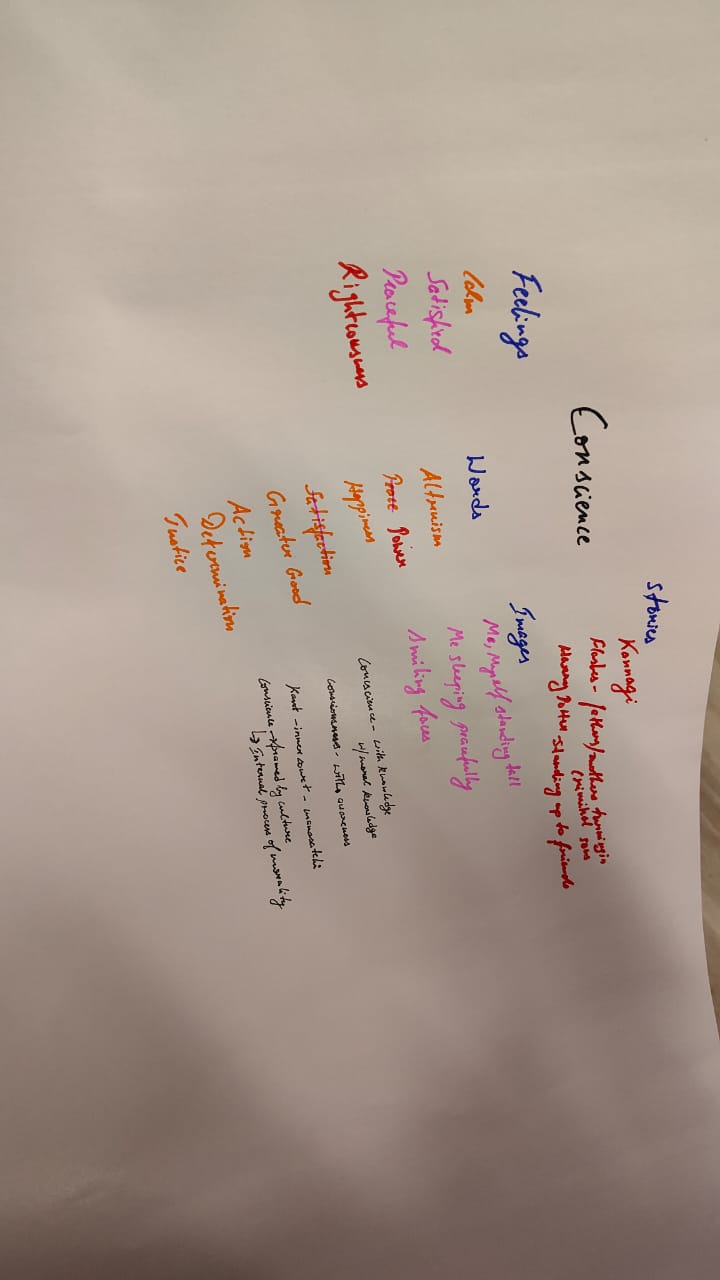 Conscience
Feelings
Calm
Satisfied
Peaceful
Righteousness
Words
Altruism
Power
Happiness
Satisfaction
Greater Good
Action
Determination
Justice
Images
Me, Myself standing tall
Me sleeping peacefully
Smiling faces
Stories
Kannagi
Flashes - fathers/mothers turning in
criminal sons
Harry Potter - standing up to friends
Conscience - with knowledge
w/ moral knowledge
consciousness - with awareness
Kant - inner court - manasatchi
conscience → framed by culture
↳ Internal process of morality